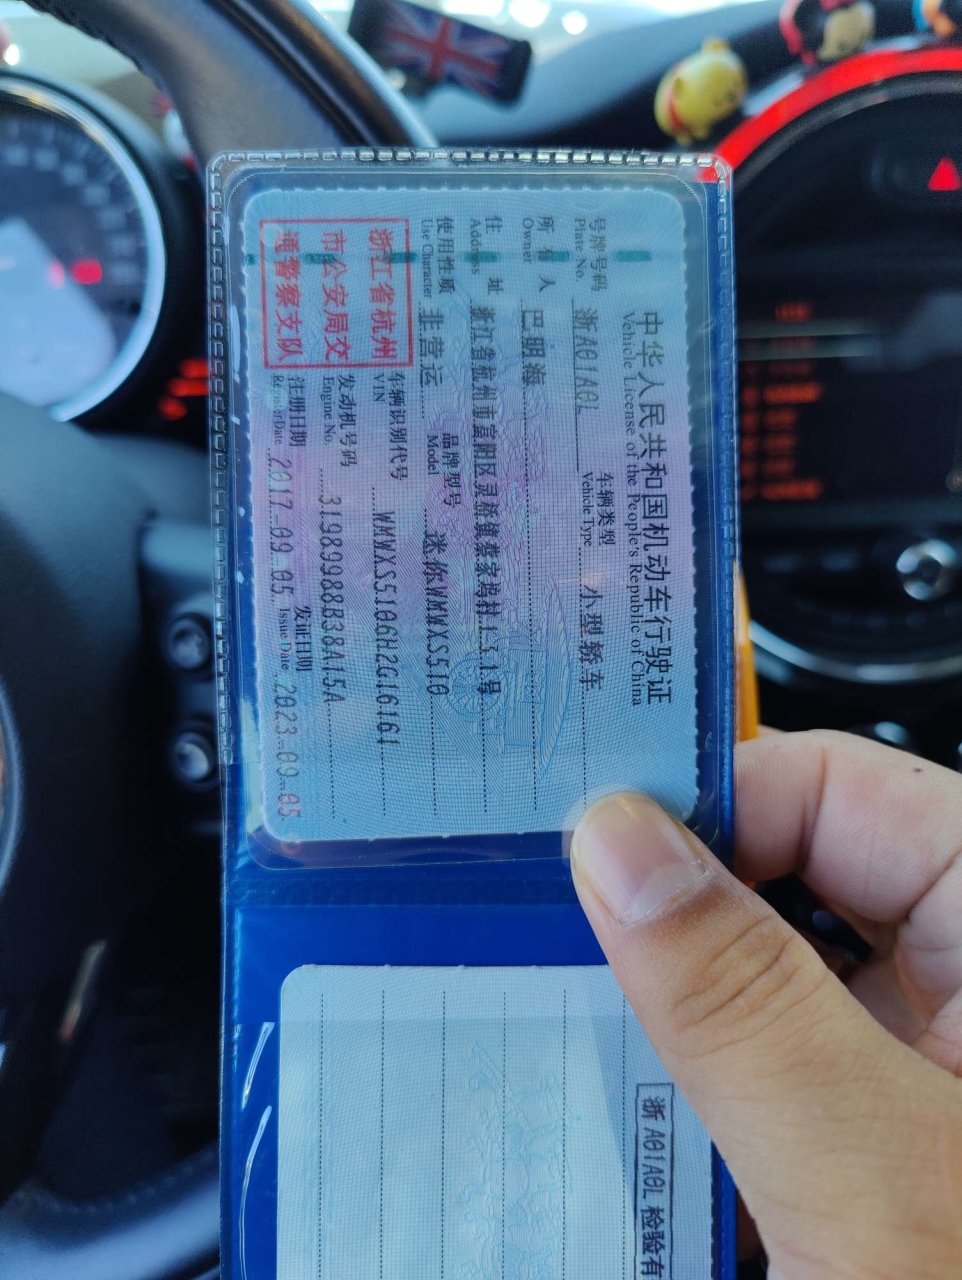 中华人民共和国机动车行驶证
Vehicle License of the People's Republic of China
号牌号码 浙A01A0L 车辆类型 小型轿车
Plate No. Vehicle Type
所有人 巴明海
Owner
住址 浙江省杭州市富阳区灵桥镇蔡家坞村
Address
使用性质 非营运 品牌型号 迷你WMWXS510
Use Character Model
浙江省杭州
市公安局交
通警察支队
车辆识别代号 WMWXS510GH2G16161
VIN
发动机号码 3198998BB38A15A
Engine No.
注册日期 2017-09-05 发证日期 2023-09-05
Register Date Issue Date
浙A01A0L 检验有